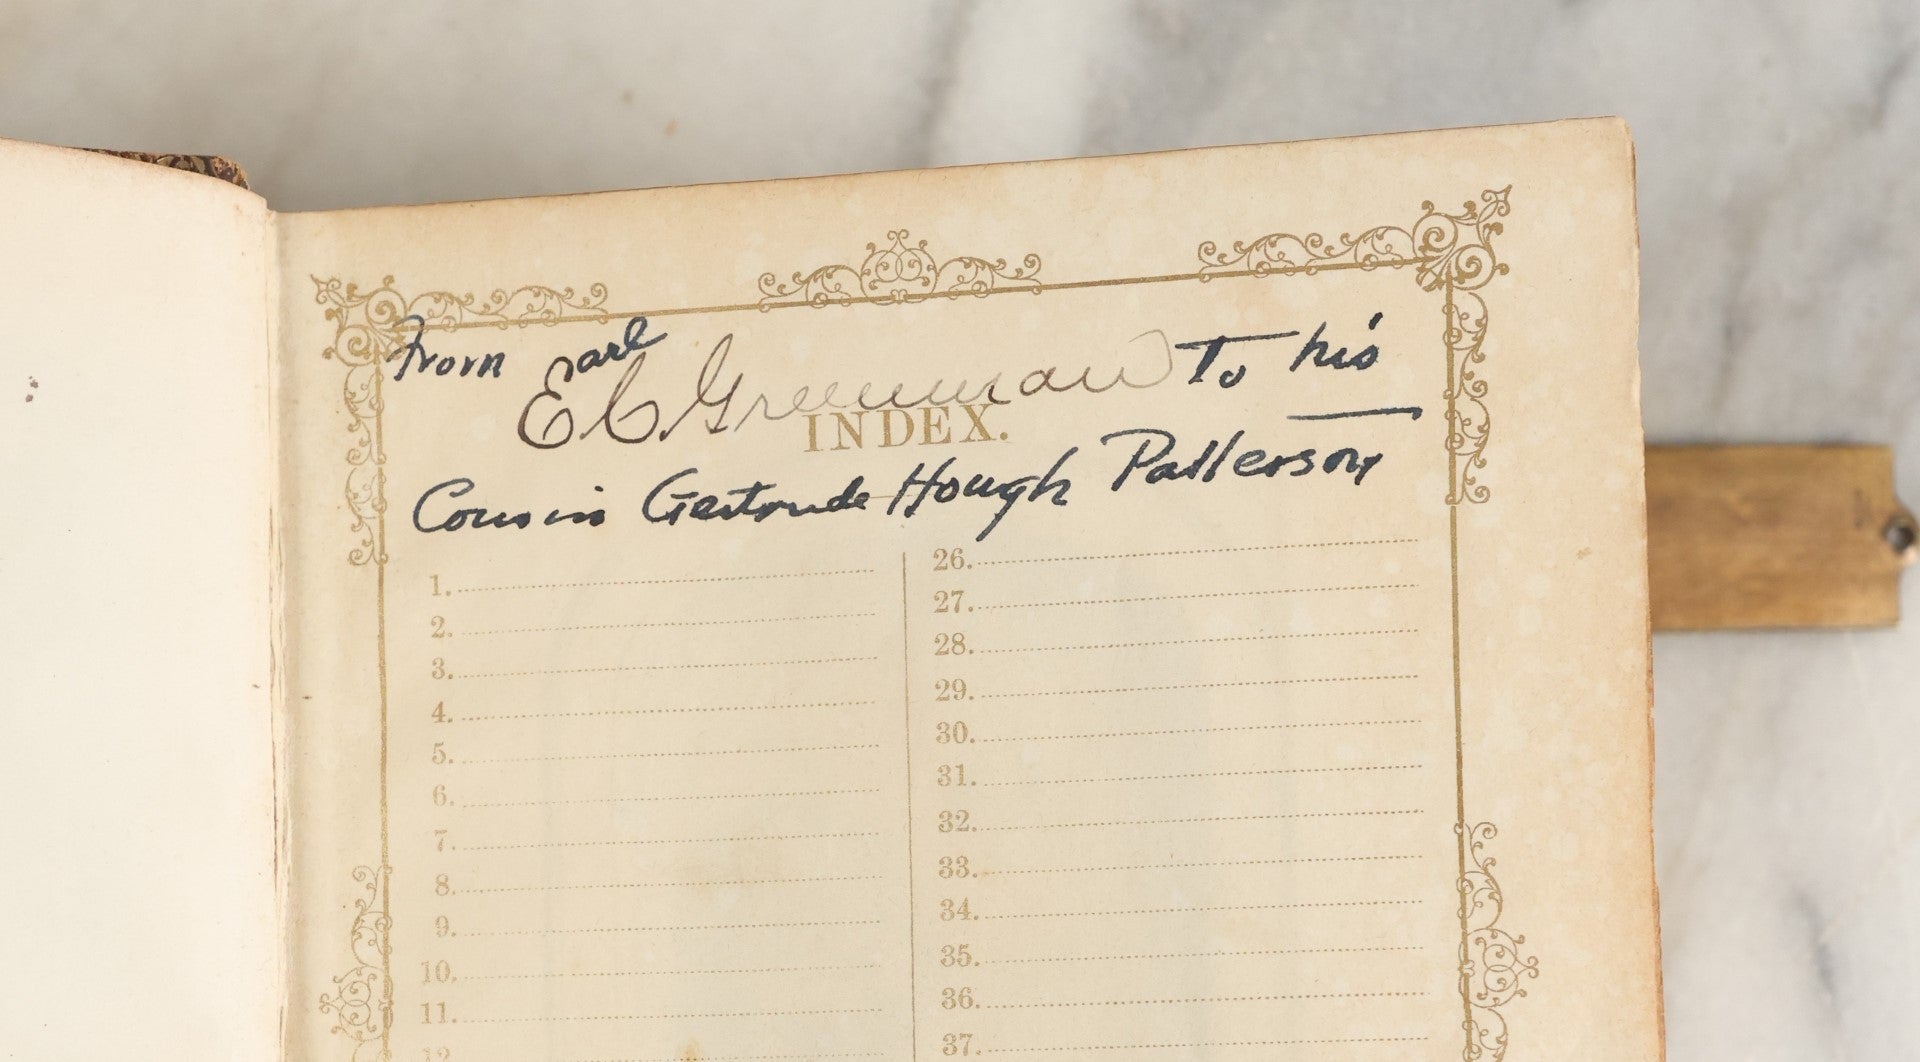 From Earl
E C Greenman To his
INDEX.
Cousin Gertrude Hough Patterson
1.
2.
3.
4.
5.
6.
7.
8.
9.
10.
11.
12.
26.
27.
28.
29.
30.
31.
32.
33.
34.
35.
36.
37.